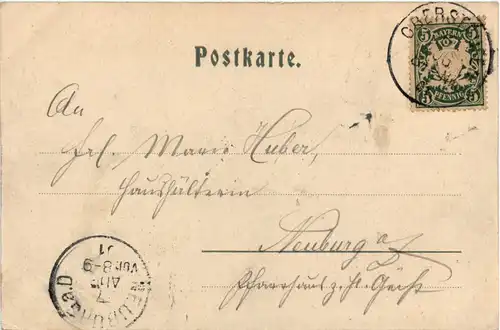 Postkarte.
BAYERN
5 5
PFENNIG
5 5
An
Frl. Marie Huber,
Haushälterin
Neuburg a/
Pfarrhaus z. hl. Geist
NEUBURG a.D
7
AUG
Vor. 8-9
01